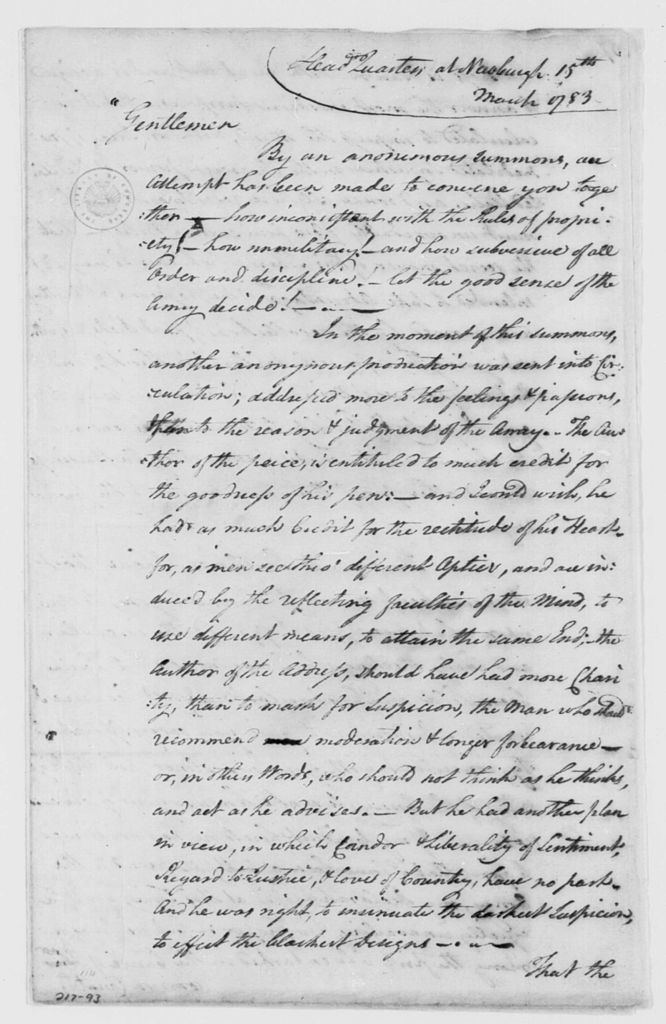 Head Quarters at Newburgh 15th
March 1783
"Gentlemen
By an anonimous summons, an
attempt has been made to convene you toge
:ther — how inconsistent with the Rules of propri-
:ety! — how unmilitary! — and how subversive of all
Order and discipline! — let the good sense of the
Army decide! — . —
In the moment of this summons,
another anonymous production was sent into Cir:
culation; addressed more to the feelings & passions,
than to the reason & judgment of the Army. — The Au-
:thor of the peice, is entituled to much credit for
the goodness of his pen: — and I could wish, he
had as much Credit for the rectitude of his Heart-
for, as men see thro' different Optics, and are in:
duced by the reflecting faculties of the Mind, to
use different means, to attain the same End; — the
Author of the Address, should have had more Chari
:ty, than to mark for Suspicion, the Man who should
recommend moderation & longer forbearance —
or, in other Words, who should not think as he thinks,
and act as he advises. — But he had another plan
in view, in which Candor & Liberality of Sentiment,
Regard to Justice, & love of Country, have no part-
And he was right, to insinuate the darkest Suspicion,
to effect the blackest Designs — . —
That the
217-93